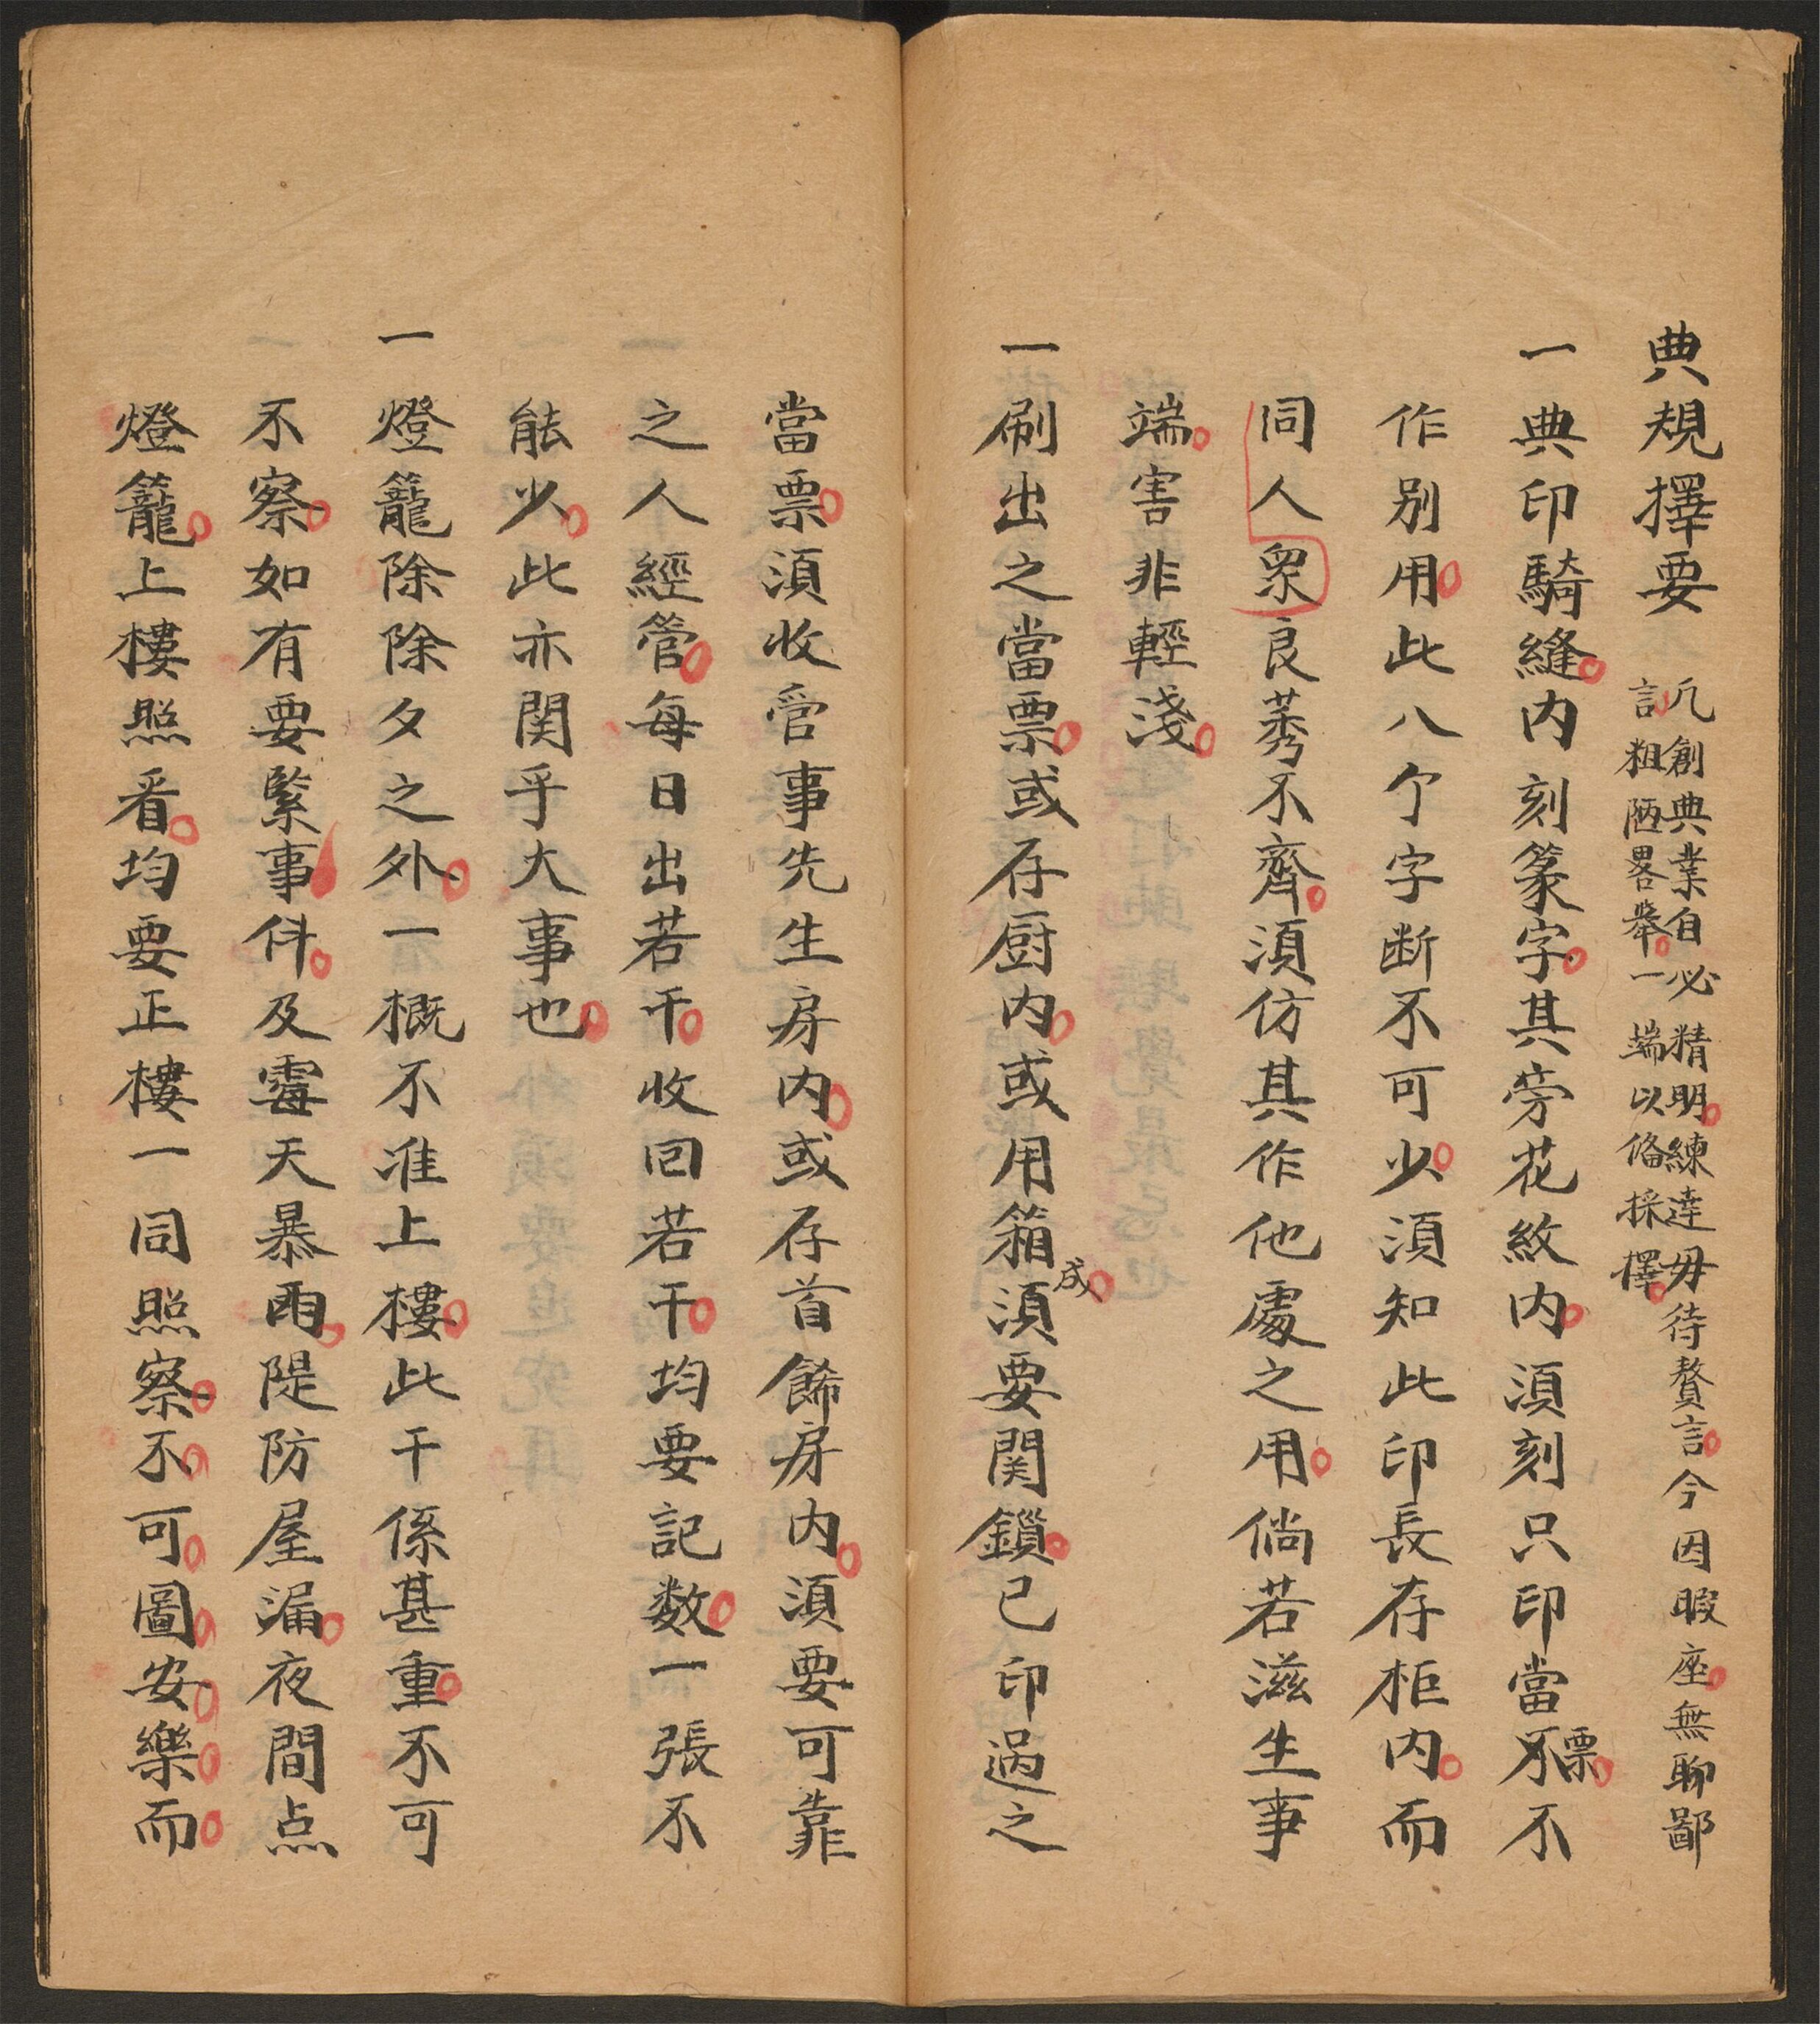 典規擇要
凡創典業自必精明練達毋待贅言今因暇座無聊鄙
言粗陋畧舉一端以俻採擇
一典印騎縫内刻篆字其旁花紋内須刻只印當票不
作别用此八个字断不可少須知此印長存柜内而
同人眾良莠不齊須仿其作他處之用倘若滋生事
端害非輕淺
一刷出之當票或存厨内或用箱盛須要関鎖已印過之
當票須收管事先生房内或存首餙房内須要可靠
之人經管每日出若干收回若干均要記数一張不
能少此亦関乎大事也
一燈籠除除夕之外一概不准上樓此干係甚重不可
不察如有要緊事件及霉天暴雨隄防屋漏夜間点
燈籠上樓照看均要正樓一同照察不可圖安樂而